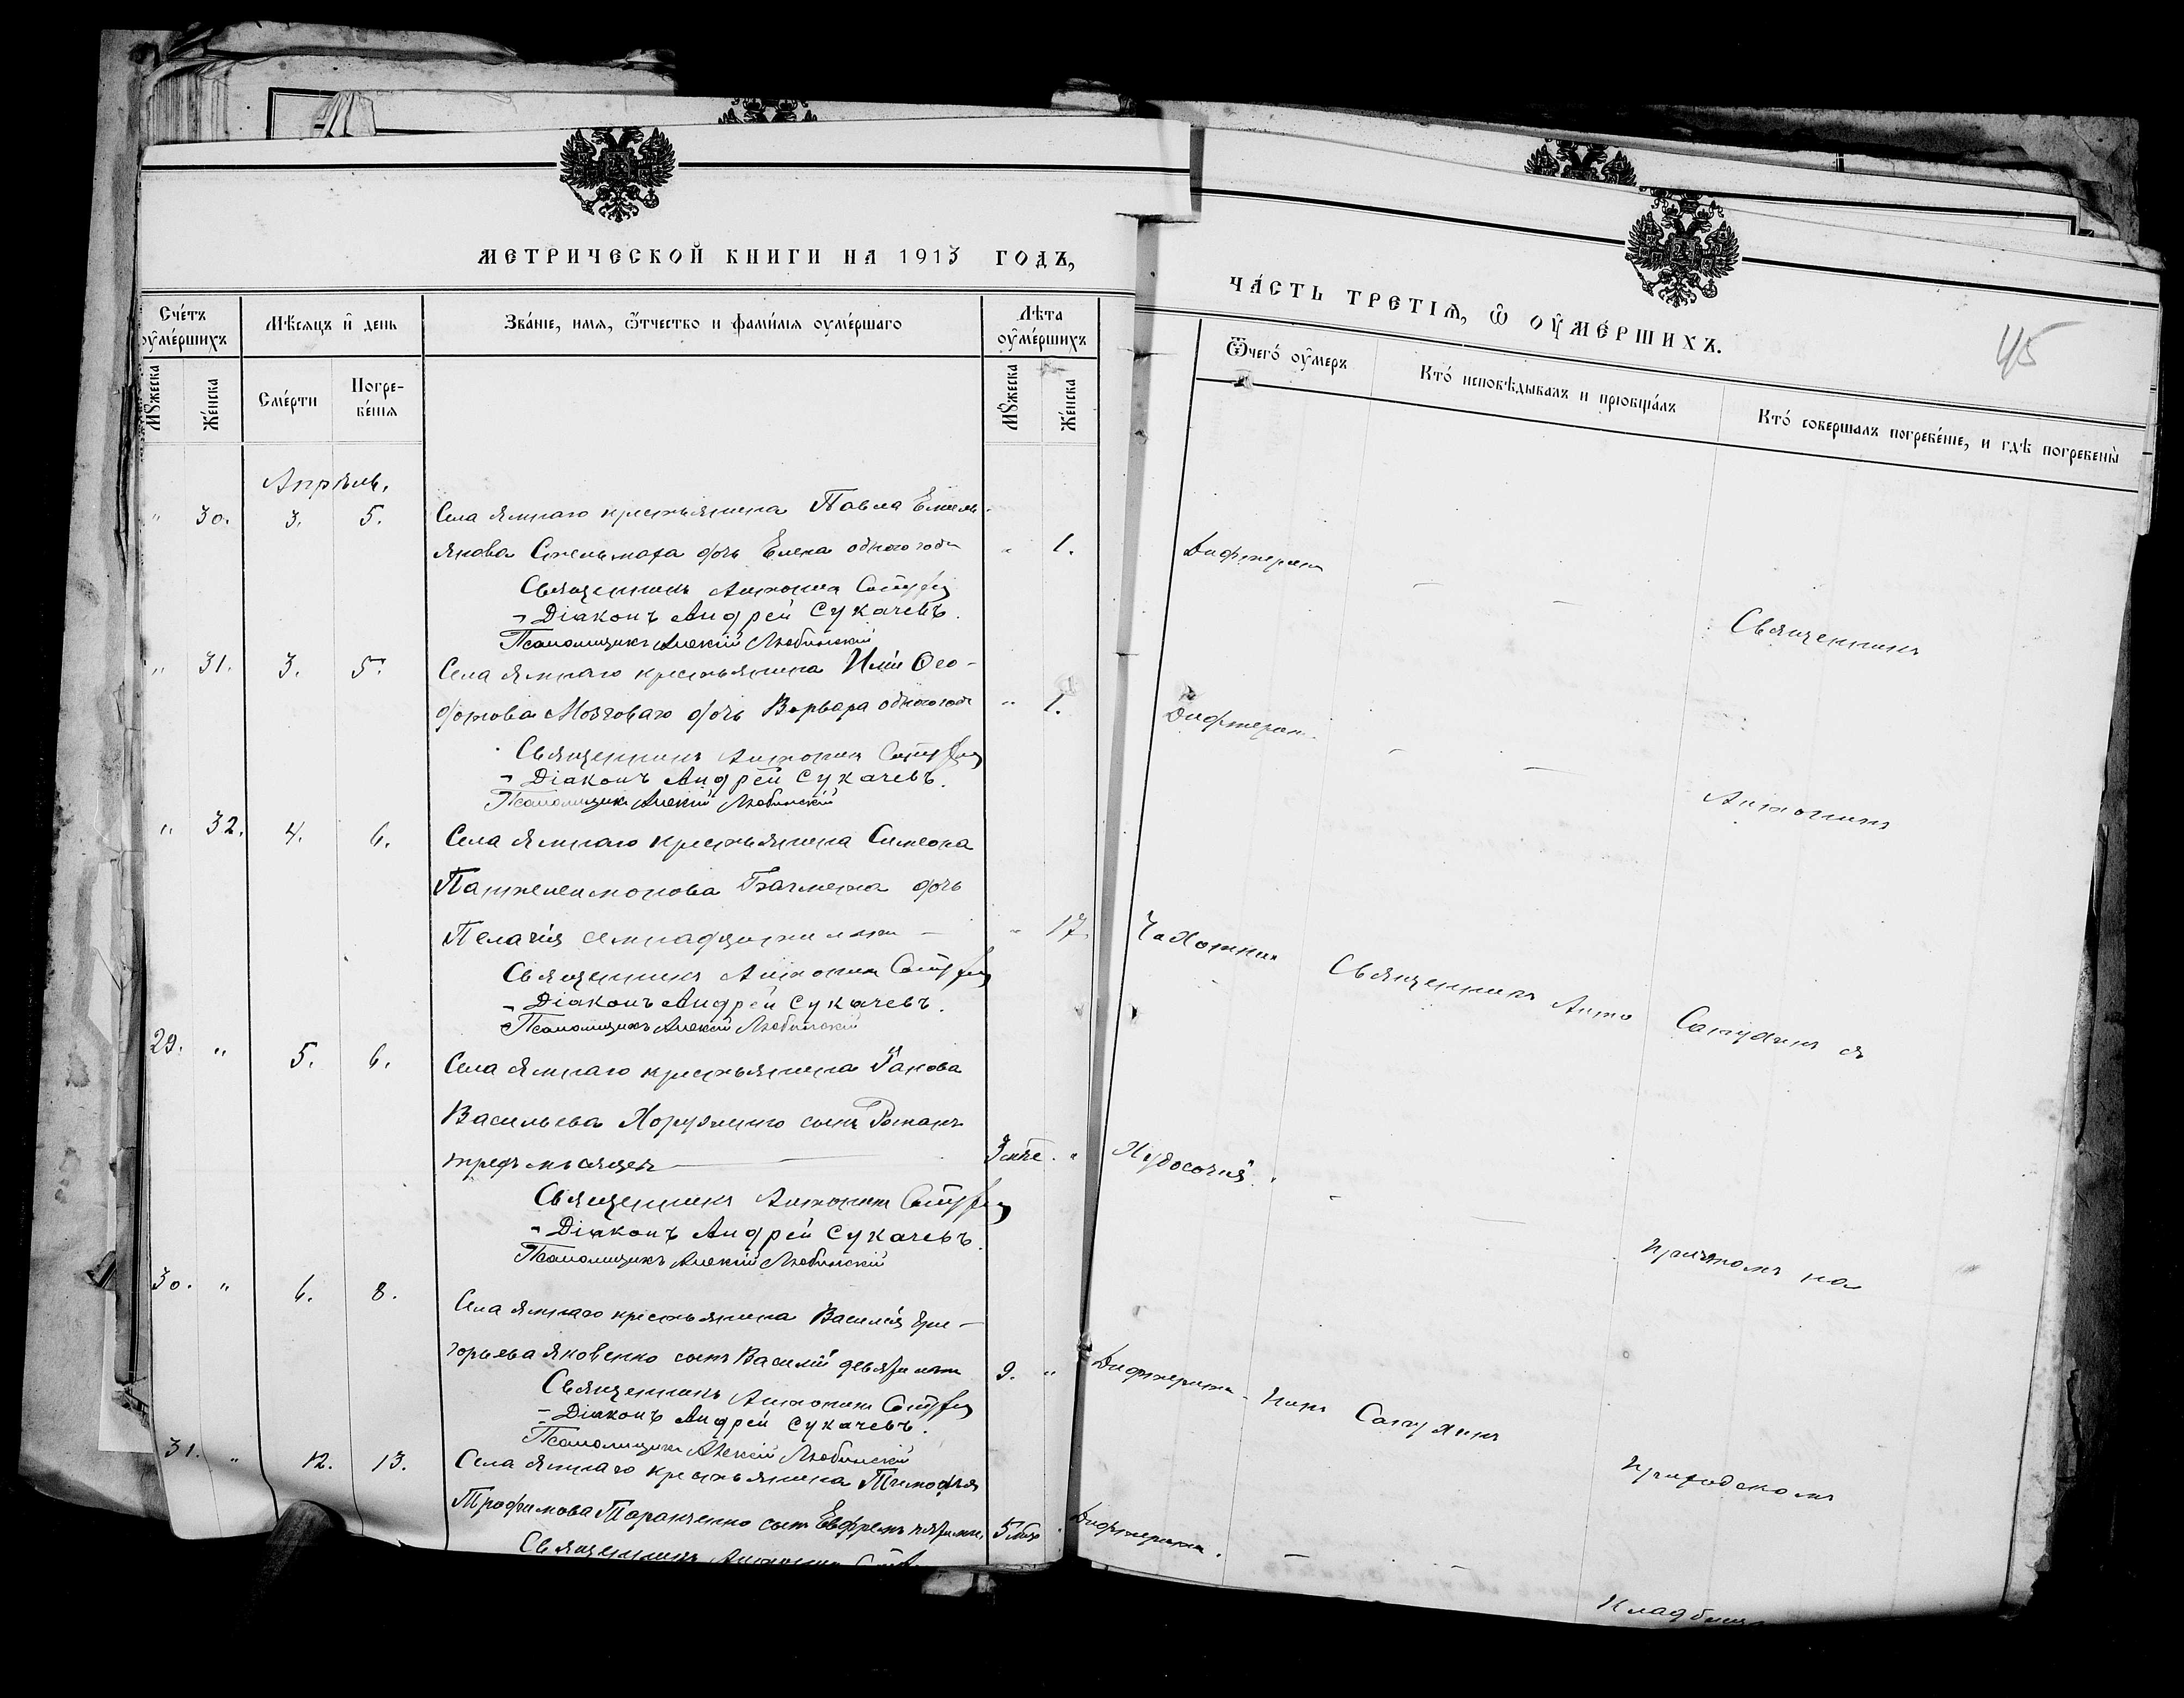 МЕТРИЧЕСКОЙ КНИГИ НА 1913 ГОДЪ,
Счетъ оумершихъ
Мѣсяцъ и день
Званіе, имя, отчество и фамилія оумершаго
Лѣта оумершихъ
Мужеска
Женска
Смерти
Погребенія
Мужеска
Женска
Апрѣль.
" 30. 3. 5. Села Ямнаго крестьянина Павла Емель-
янова Стельмаха дочь Елена одного года " 1.
Священникъ Антонин
Діаконъ Андрей Сукачевъ.
Псаломщикъ Алексій Любинскій
" 31. 3. 5. Села Ямнаго крестьянина Иліи Ѳео-
дотова Мозговаго дочь Варвара одного года " 1.
Священникъ Антонин
Діаконъ Андрей Сукачевъ.
Псаломщикъ Алексій Любинскій
" 32. 4. 6. Села Ямнаго крестьянина Симеона
Пантелеимонова дочь
Пелагія семнадцати лѣтъ " 17.
Священникъ Антонин
Діаконъ Андрей Сукачевъ.
Псаломщикъ Алексій Любинскій
29. " 5. 6. Села Ямнаго крестьянина Іакова
Васильева сынъ Романъ
трехъ мѣсяцевъ 3 мѣс. "
Священникъ Антонин
Діаконъ Андрей Сукачевъ.
Псаломщикъ Алексій Любинскій
30. " 6. 8. Села Ямнаго крестьянина Василія Гри-
горьева Яковенко сынъ Василій девяти лѣтъ 9. "
Священникъ Антонин
Діаконъ Андрей Сукачевъ.
Псаломщикъ Алексій Любинскій
31. " 12. 13. Села Ямнаго крестьянина Тимофея
Трофимова сынъ Евфремъ
Священникъ Антонин
ЧАСТЬ ТРЕТІЯ, Ѡ ОУМЕРШИХЪ.
45
Ѿчего оумеръ
Кто исповѣдывалъ и пріобщалъ
Кто совершалъ погребеніе, и гдѣ погребены
Дифтерит
Священникъ
Дифтерит.
Антонинъ
Чахотки
Священникъ Анто
Сапухинъ съ
Худосочія.
причтомъ на
Дифтерита
нинъ Сапухинъ
приходскомъ
Дифтерита.
кладбищ